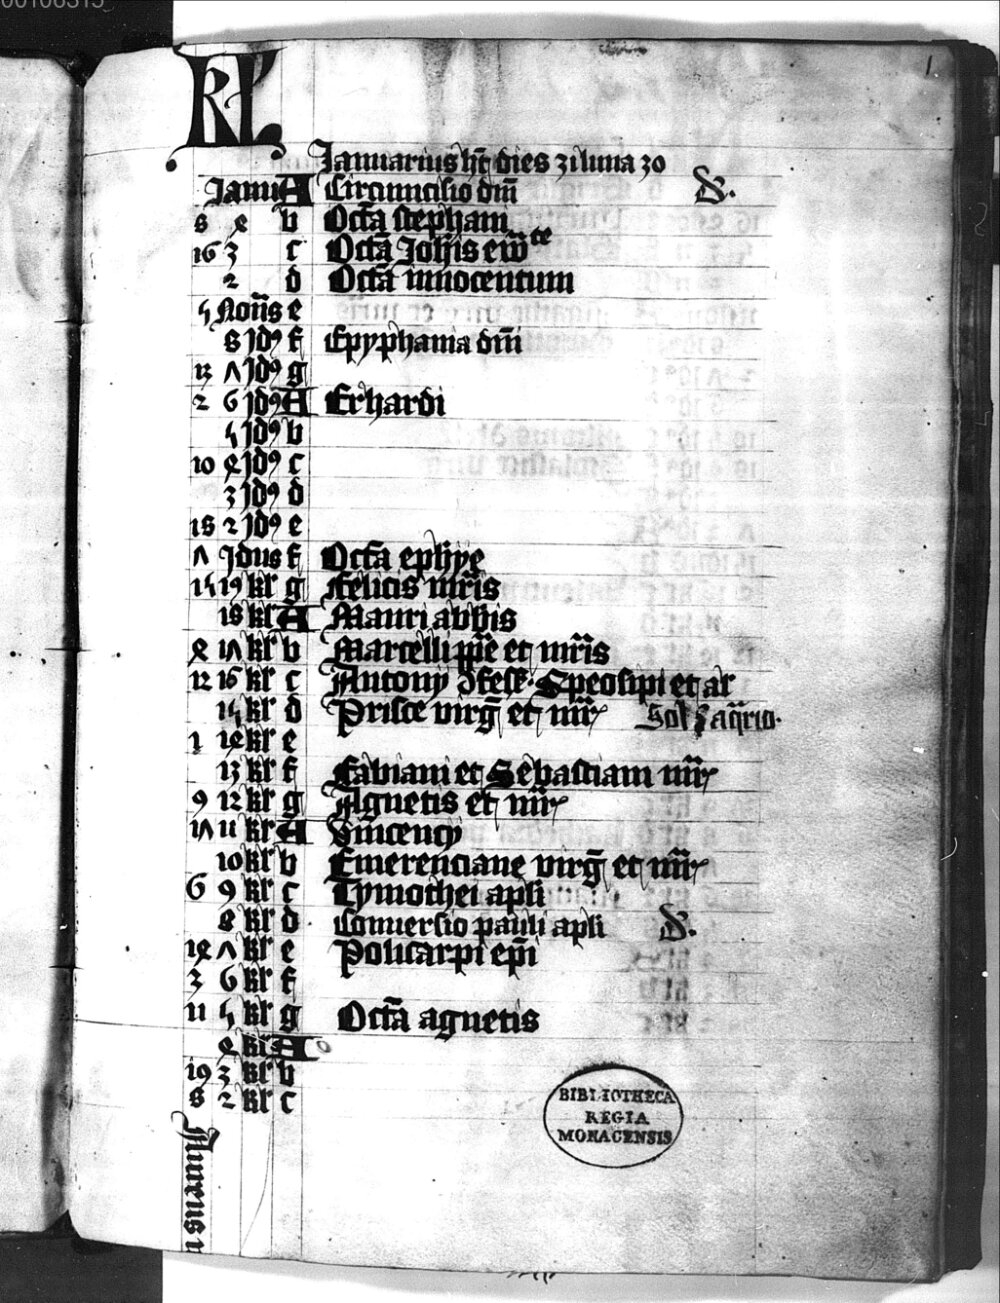 00106315
1
KL
Januarius ht dies 31 luna 30
Janu A Circumcisio dm̄ d.
8 4 b Octa stephani
16 3 c Octā Joh̄is ew̄te
2 d Octa innocentum
5 Non̄s e
8 Jdꝰ f Epyphania dm̄
13 7 Jdꝰ g
2 6 Jdꝰ A Erhardi
5 Jdꝰ b
10 4 Jdꝰ c
3 Jdꝰ d
18 2 Jdꝰ e
7 Jdus f Octa ephye
15 19 kl g Felicis mr̄is
18 kl A Mauri abbis
4 17 kl b Marcelli pp̄e et mr̄is
12 16 kl c Antony 9fess. Speosipi et al
15 kl d Prisce virg̅ et mr̄ Sol aq̄rio.
1 14 kl e
13 kl f Fabiani et Sebastiani mr̄
9 12 kl g Agnetis et mr̄
17 11 kl A Vincency
10 kl b Emerenciane virg̅ et mr̄
6 9 kl c Tymothei apli
8 kl d Conuersio pauli apli d.
14 7 kl e Policarpi ep̄i
3 6 kl f
11 5 kl g Octā agnetis
4 kl A
19 3 kl b
8 2 kl c
BIBLIOTHECA
REGIA
MONACENSIS